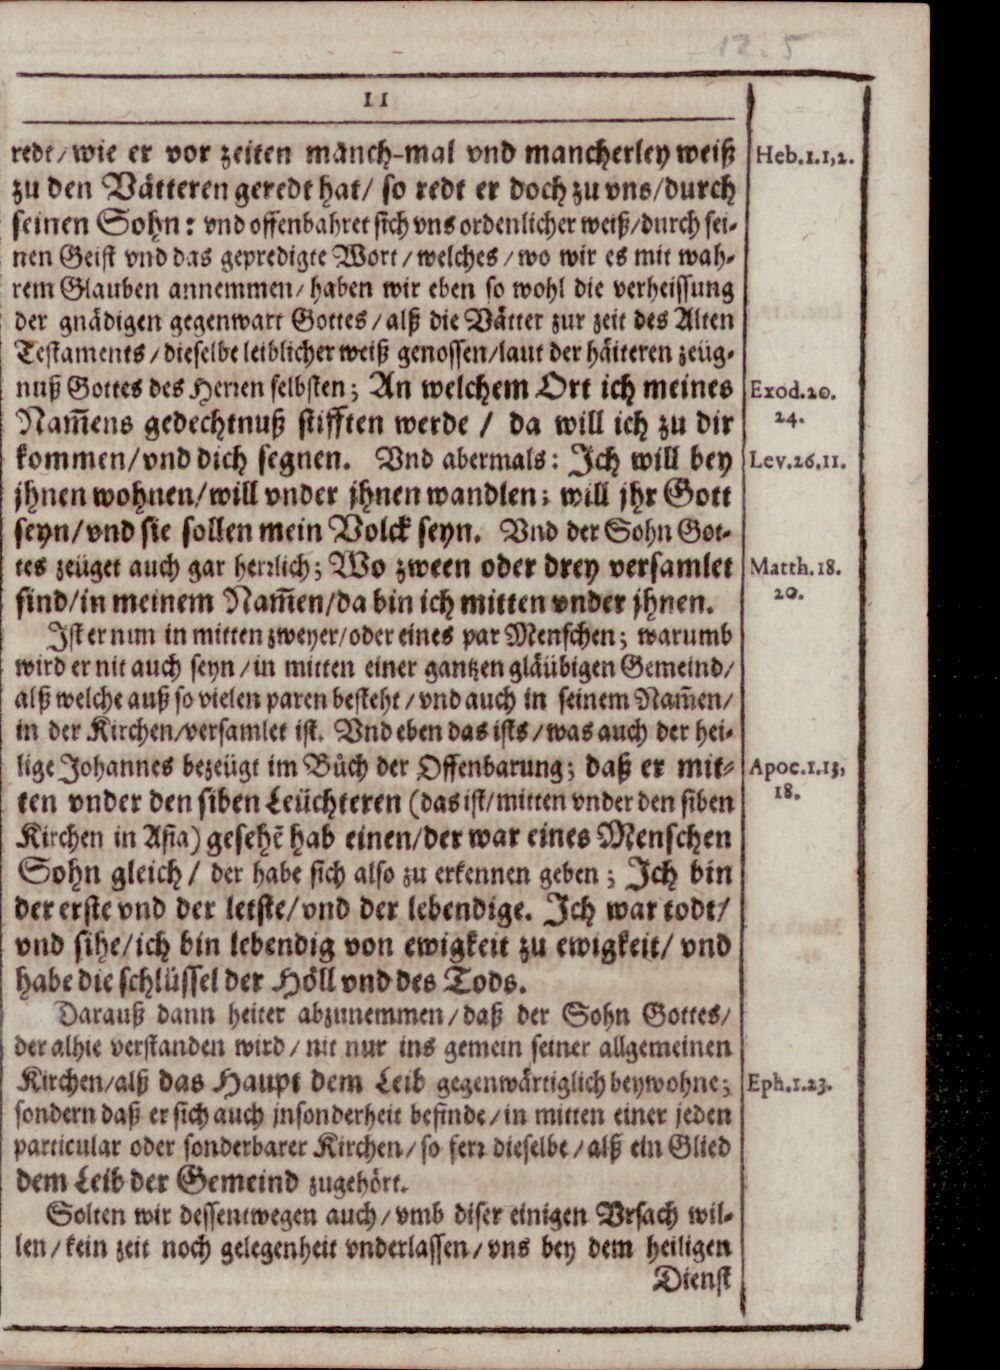 12.5
11
redt/ wie er vor zeiten manch-mal vnd mancherley weiß
Heb.1.1,2.
zu den Vätteren geredt hat/ so redt er doch zu vns/ durch
seinen Sohn: vnd offenbahret sich vns ordenlicher weiß/ durch sei-
nen Geist vnd das gepredigte Wort/ welches/ wo wir es mit wah-
rem Glauben annemmen/ haben wir eben so wohl die verheissung
der gnädigen gegenwart Gottes/ alß die Vätter zur zeit des Alten
Testaments/ dieselbe leiblicher weiß genossen/ laut der häiteren zeüg-
nuß Gottes des Herren selbsten; An welchem Ort ich meines
Exod.20.
Nam̃ens gedechtnuß stifften werde / da will ich zu dir
24.
kommen/ vnd dich segnen. Vnd abermals: Ich will bey
Lev.26.11.
jhnen wohnen/ will vnder jhnen wandlen; will jhr Gott
seyn/ vnd sie sollen mein Volck seyn. Vnd der Sohn Got-
tes zeüget auch gar herrlich; Wo zween oder drey versamlet
Matth.18.
sind/ in meinem Nam̃en/ da bin ich mitten vnder jhnen.
20.
Ist er nun in mitten zweyer/ oder eines par Menschen; warumb
wird er nit auch seyn/ in mitten einer gantzen gläübigen Gemeind/
alß welche auß so vielen paren besteht/ vnd auch in seinem Nam̃en/
in der Kirchen/ versamlet ist. Vnd eben das ists/ was auch der hei-
lige Johannes bezeügt im Bůch der Offenbarung; daß er mit-
Apoc.1.13,
ten vnder den siben Leüchteren (das ist/ mitten vnder den siben
18.
Kirchen in Asia) gesehẽ hab einen/ der war eines Menschen
Sohn gleich/ der habe sich also zu erkennen geben; Ich bin
der erste vnd der letste/ vnd der lebendige. Ich war todt/
vnd sihe/ ich bin lebendig von ewigkeit zu ewigkeit/ vnd
habe die schlüssel der Höll vnd des Tods.
Darauß dann heiter abzunemmen/ daß der Sohn Gottes/
der alhie verstanden wird/ nit nur ins gemein seiner allgemeinen
Kirchen/ alß das Haupt dem Leib gegenwärtiglich beywohne;
Eph.1.23.
sondern daß er sich auch jnsonderheit befinde/ in mitten einer jeden
particular oder sonderbarer Kirchen/ so ferr dieselbe/ alß ein Glied
dem Leib der Gemeind zugehört.
Solten wir dessentwegen auch/ vmb diser einigen Vrsach wil-
len/ kein zeit noch gelegenheit vnderlassen/ vns bey dem heiligen
Dienst